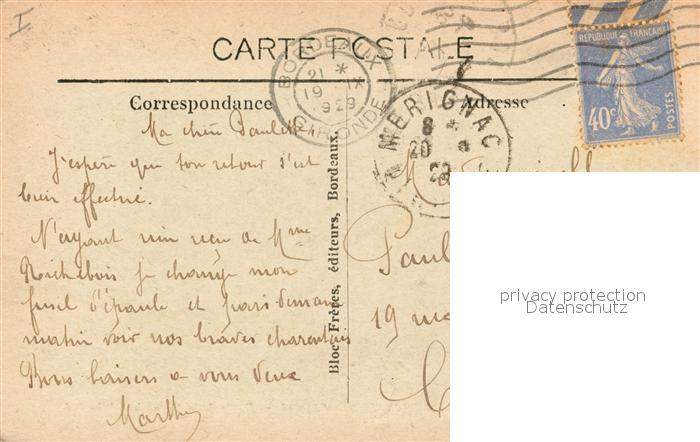 I
CARTE POSTALE
Correspondance
Adresse
BORDEAUX
21 *
19 IX
929
GIRONDE
MERIGNAC
8 *
20
29
REPUBLIQUE FRANÇAISE
40c
POSTES
Ma chère Paulette
J'espère que ton retour s'est
bien effectué.
N'ayant rien reçu de Mme
Richebois je change mon
fusil d'épaule et pars demain
matin voir nos braves charentais
Bons baisers à vous deux
Marthe
Bloc Frères, éditeurs, Bordeaux.
Paul
19
privacy protection
Datenschutz